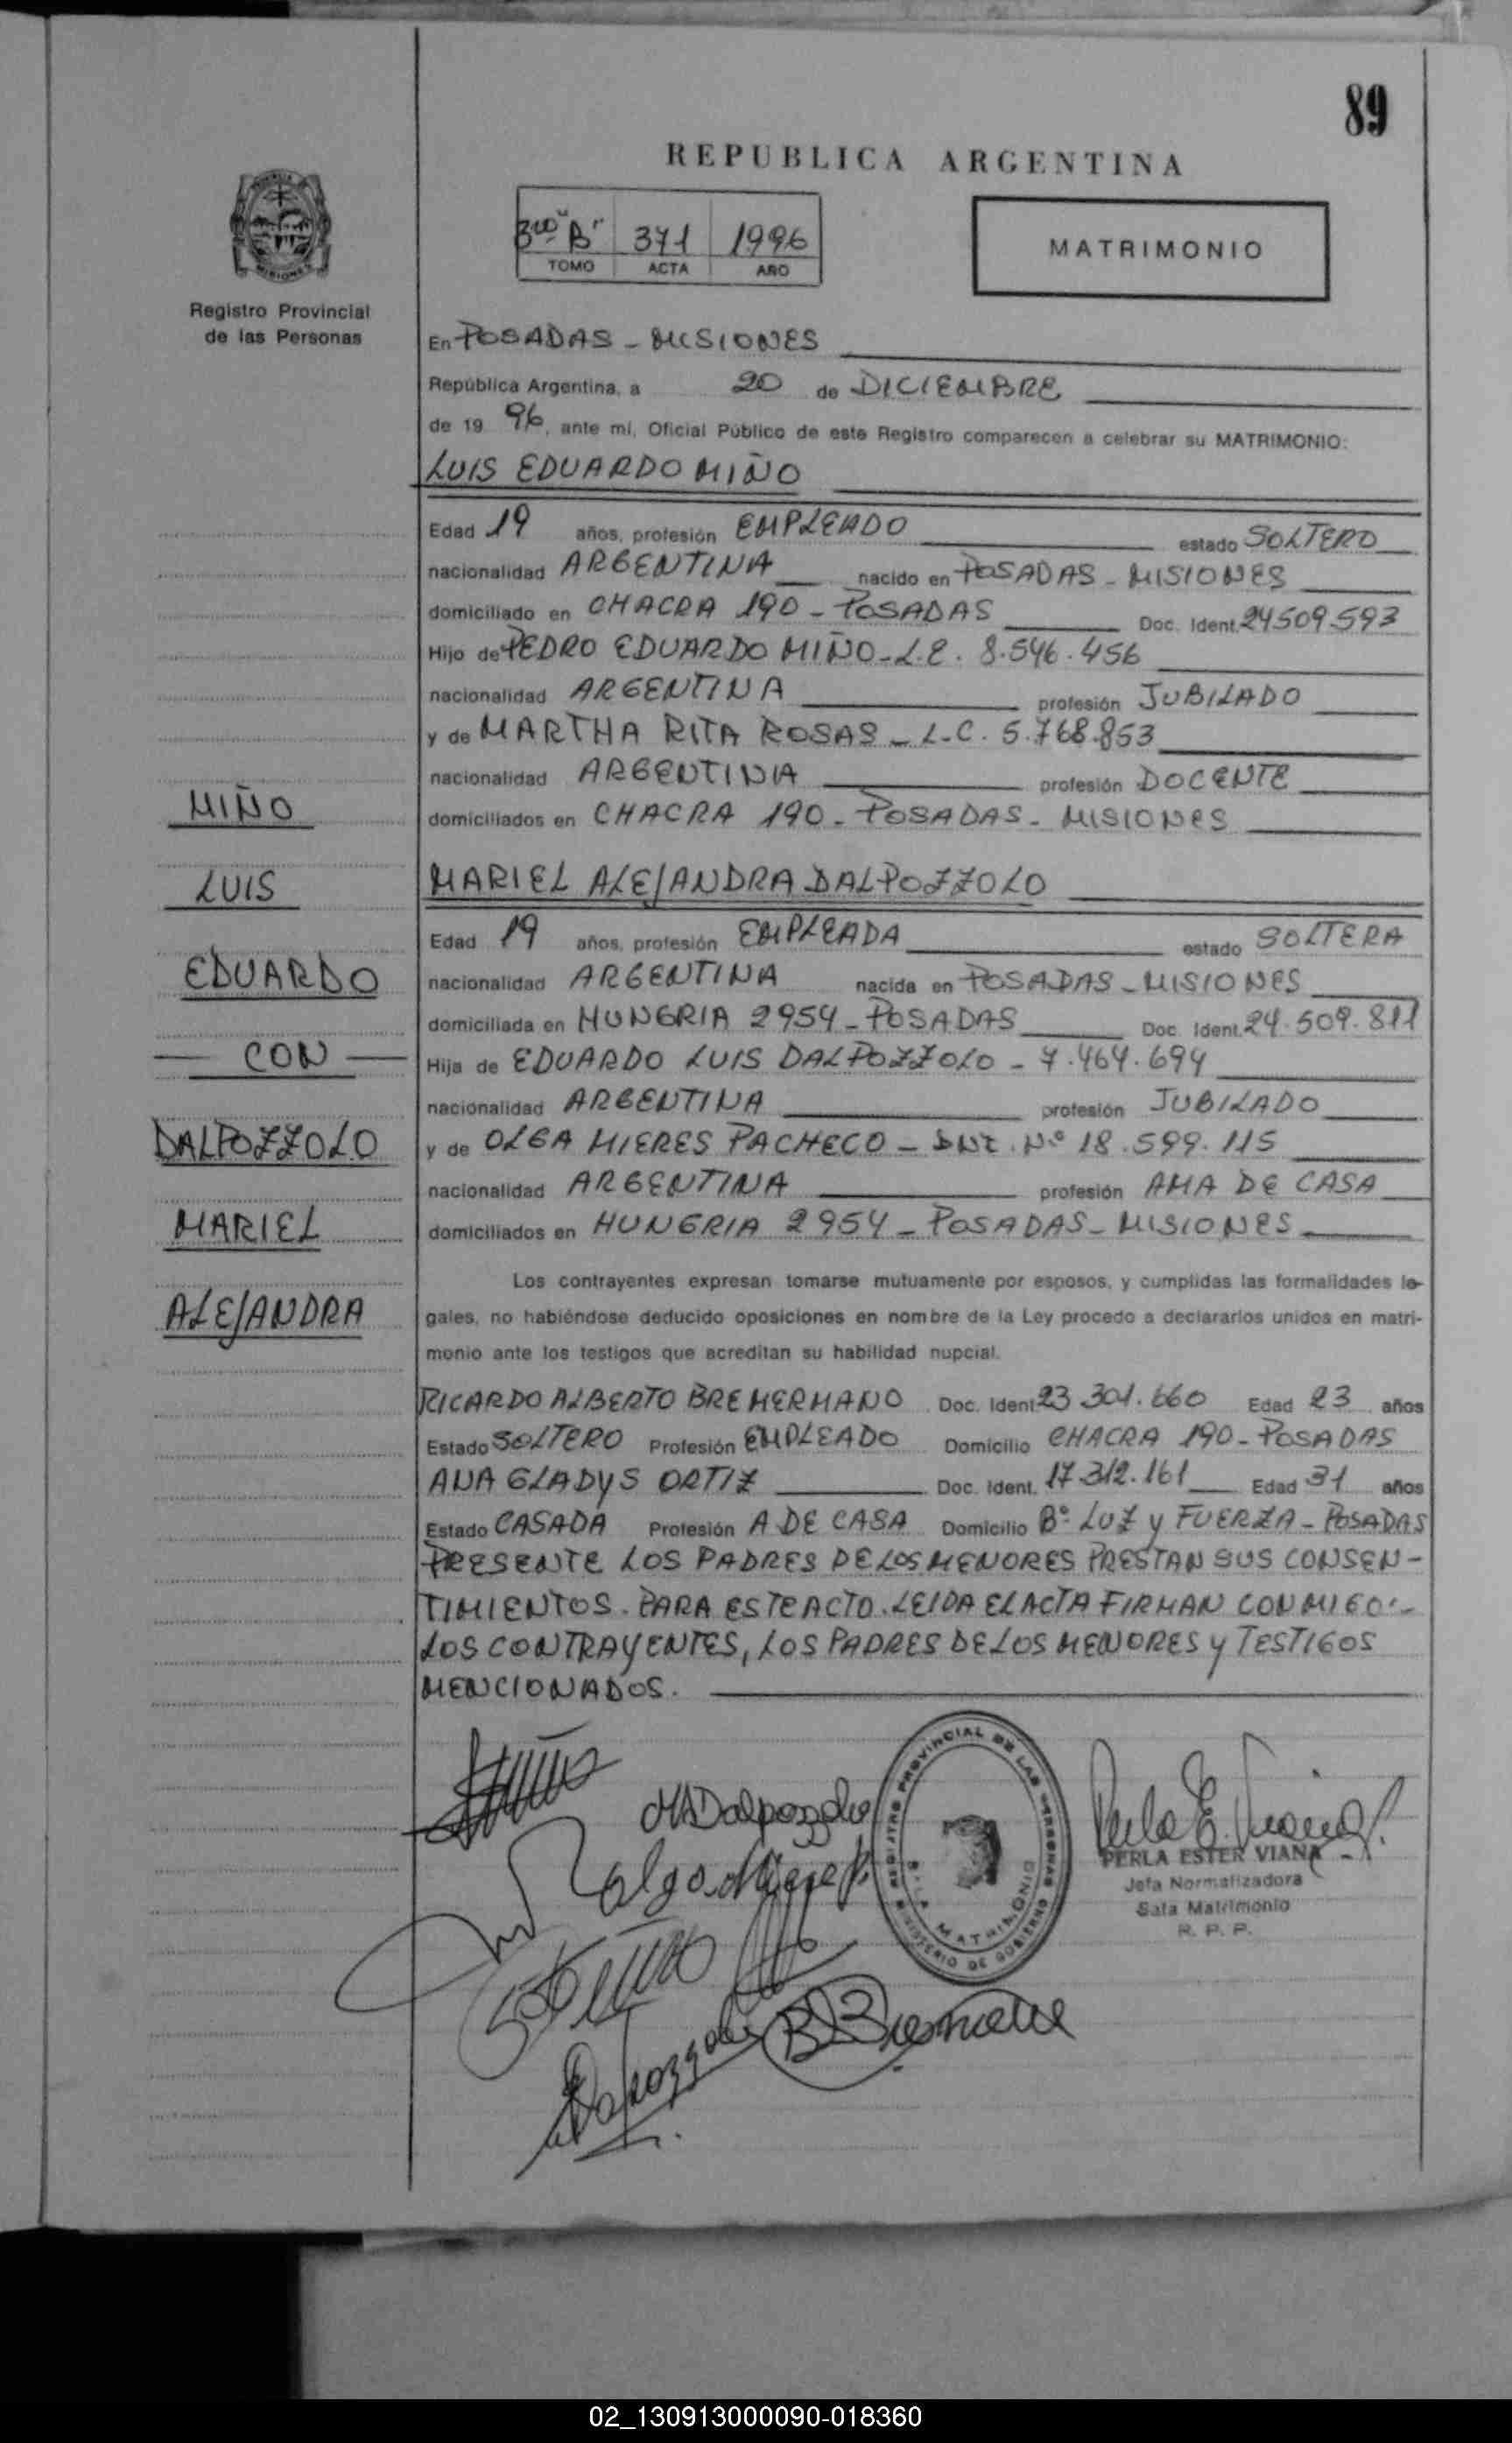 89
REPUBLICA ARGENTINA
3ro "B" 371 1996
TOMO ACTA AÑO
MATRIMONIO
Registro Provincial
de las Personas
En POSADAS - MISIONES
República Argentina, a 20 de DICIEMBRE
de 19 96, ante mí, Oficial Público de este Registro comparecen a celebrar su MATRIMONIO:
LUIS EDUARDO MIÑO
Edad 19 años, profesión EMPLEADO estado SOLTERO
nacionalidad ARGENTINA nacido en POSADAS - MISIONES
domiciliado en CHACRA 190 - POSADAS Doc. Ident. 24509.593
Hijo de PEDRO EDUARDO MIÑO - L.E. 8.546.456
nacionalidad ARGENTINA profesión JUBILADO
y de MARTHA RITA ROSAS - L.C. 5.768.853
nacionalidad ARGENTINA profesión DOCENTE
domiciliados en CHACRA 190 - POSADAS - MISIONES
MARIEL ALEJANDRA DALPOZZOLO
Edad 19 años, profesión EMPLEADA estado SOLTERA
nacionalidad ARGENTINA nacida en POSADAS - MISIONES
domiciliada en HUNGRIA 2954 - POSADAS Doc. Ident. 24.509.811
Hija de EDUARDO LUIS DALPOZZOLO - 7.464.694
nacionalidad ARGENTINA profesión JUBILADO
y de OLGA MIERES PACHECO - DNI. Nº 18.599.115
nacionalidad ARGENTINA profesión AMA DE CASA
domiciliados en HUNGRIA 2954 - POSADAS - MISIONES
MIÑO
LUIS
EDUARDO
— CON —
DALPOZZOLO
MARIEL
ALEJANDRA
Los contrayentes expresan tomarse mutuamente por esposos, y cumplidas las formalidades le-
gales, no habiéndose deducido oposiciones en nombre de la Ley procedo a declararlos unidos en matri-
monio ante los testigos que acreditan su habilidad nupcial.
RICARDO ALBERTO BREMERMANO Doc. Ident. 23.301.660 Edad 23 años
Estado SOLTERO Profesión EMPLEADO Domicilio CHACRA 190 - POSADAS
ANA GLADYS ORTIZ Doc. Ident. 17.312.161 Edad 31 años
Estado CASADA Profesión A DE CASA Domicilio Bº LUZ y FUERZA - POSADAS
PRESENTE LOS PADRES DE LOS MENORES PRESTAN SUS CONSEN-
TIMIENTOS. PARA ESTE ACTO. LEIDA EL ACTA FIRMAN CONMIGO.-
LOS CONTRAYENTES, LOS PADRES DE LOS MENORES y TESTIGOS
MENCIONADOS.
MADalpozzolo
REGISTRO PROVINCIAL DE LAS PERSONAS
SALA MATRIMONIO
MINISTERIO DE GOBIERNO
Perla E. Viana
PERLA ESTER VIANA
Jefa Normalizadora
Sala Matrimonio
R. P. P.
Olga Mieres P.
Dalpozzolo
02_130913000090-018360